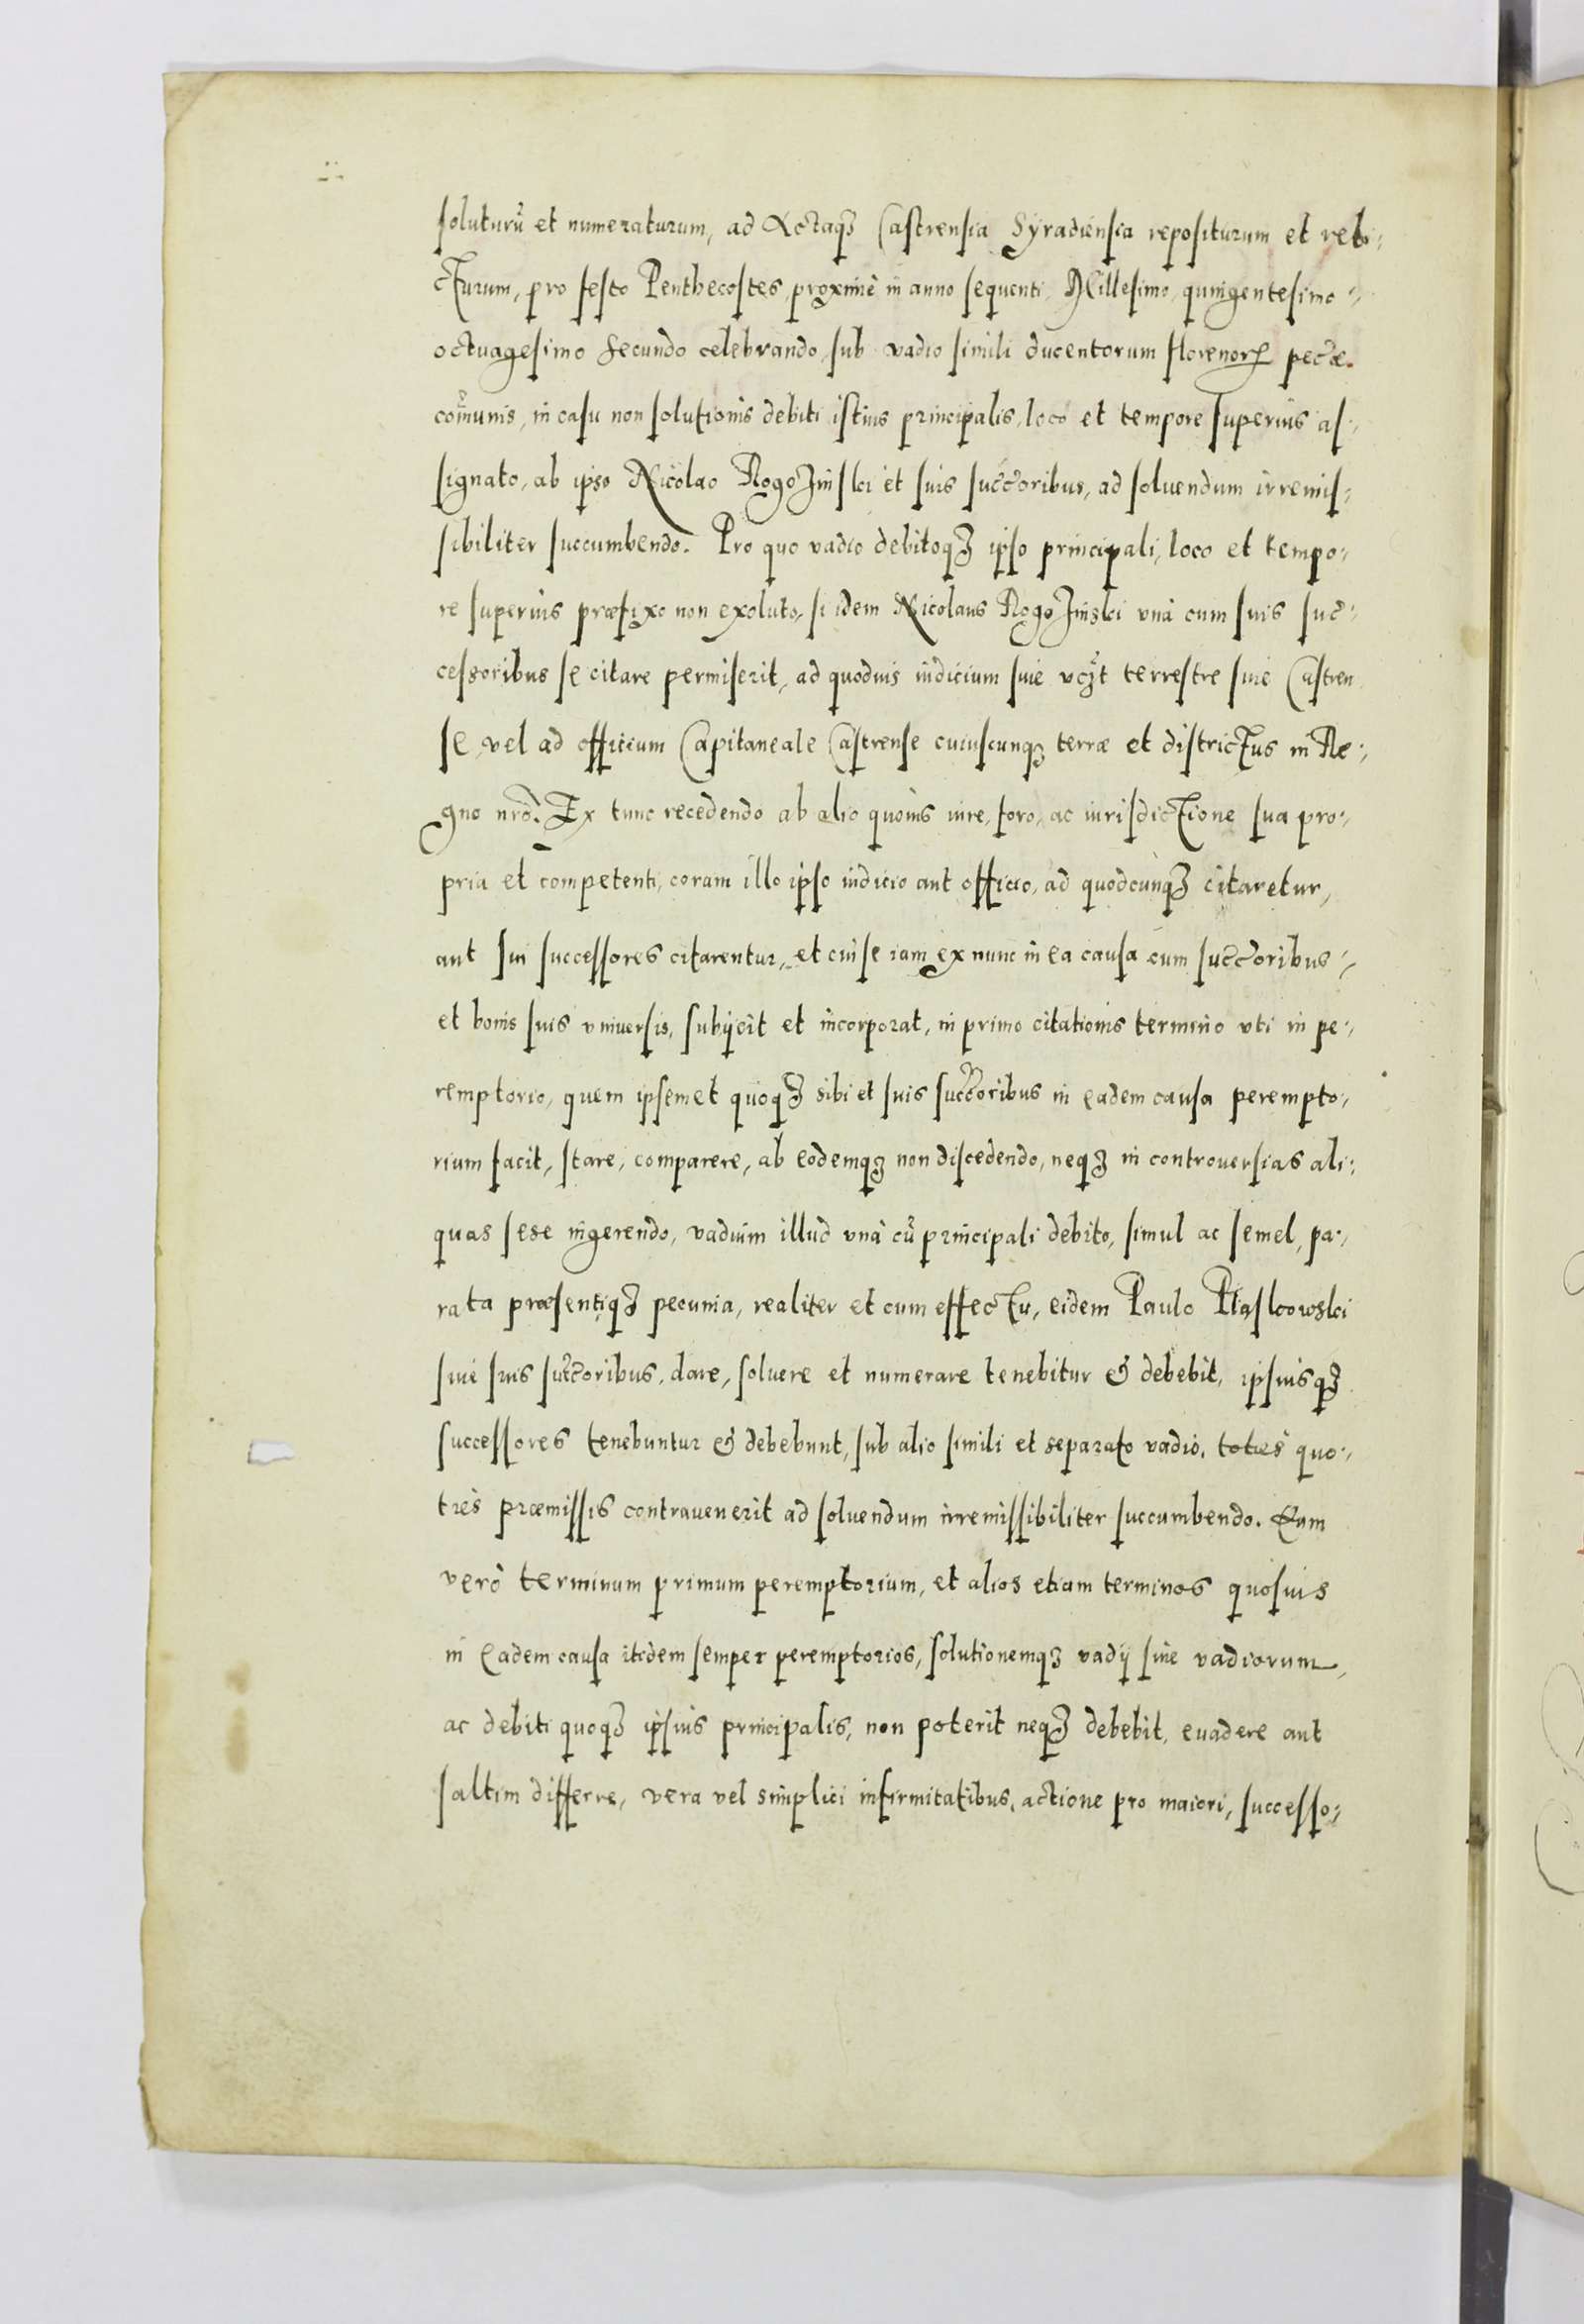 soluturũ et numeraturum, ad Actaqꝫ Castrensia Syradiensia repositurum et reli:
cturum, pro festo Penthecostes, proximè in anno sequenti Millesimo quingentesimo
octuagesimo secundo celebrando, sub vadio simili ducentorum florenorꝝ pecæ.
cõmunis, in casu non solutionis debiti istius principalis, loco et tempore superius as:
signato, ab ipso Nicolao Rogoziński et suis succoribus, ad soluendum irremis:
sibiliter succumbendo. Pro quo vadio debitoqꝫ ipso principali, loco et tempo:
re superius præfixo non exoluto, si idem Nicolaus Rogoziński vnà cum suis suc:
cessoribus se citare permiserit, ad quoduis iudicium siue vcꝫt terrestre siue Castren
se, vel ad officium Capitaneale Castrense cuiuscunqꝫ terræ et districtus in Re:
gno nrõ. Ex tunc recedendo ab alio quouis iure, foro, ac iurisdictione sua pro:
pria et competenti, coram illo ipso iudicio aut officio, ad quodcunqꝫ citaretur,
aut sui successores citarentur, et cui se iam ex nunc in ea causa cum succoribus
et bonis suis vniuersis, subijcit et incorporat, in primo citationis termino vti in pe:
remptorio, quem ipsemet quoqꝫ sibi et suis succoribus in eadem causa perempto:
rium facit, stare, comparere, ab eodemqꝫ non discedendo, neqꝫ in controuersias ali:
quas sese ingerendo, vadium illud vnà cũ principali debito, simul ac semel, pa:
rata præsentiqꝫ pecunia, realiter et cum effectu, eidem Paulo Piaskowski
siue suis succoribus, dare, soluere et numerare tenebitur & debebit, ipsiusqꝫ
successores tenebuntur & debebunt, sub alio simili et separato vadio, toties quo:
ties præmissis contrauenerit ad soluendum irremissibiliter succumbendo. Eum
verò terminum primum peremptorium, et alios etiam terminos quosuis
in eadem causa itidem semper peremptorios, solutionemqꝫ vadij siue vadiorum,
ac debiti quoqꝫ ipsius principalis, non poterit neqꝫ debebit, euadere aut
saltim differre, vera vel simplici infirmitatibus, actione pro maiori, successo: